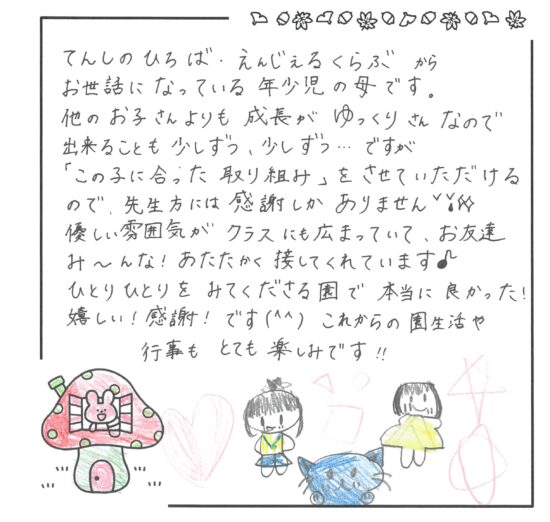 てんしのひろば・えんじぇるくらぶ から
お世話になっている 年少児の母です。
他のお子さんよりも 成長が ゆっくりさん なので
出来ることも 少しずつ、少しずつ… ですが
「この子に合った 取り組み」を させていただける
ので、先生方には 感謝しか ありません
優しい雰囲気が クラスにも広まっていて、お友達
み〜んな! あたたかく 接してくれています♪
ひとりひとりを みてくださる園で 本当に 良かった!
嬉しい!感謝! です(^^) これからの 園生活や
行事も とても 楽しみです!!